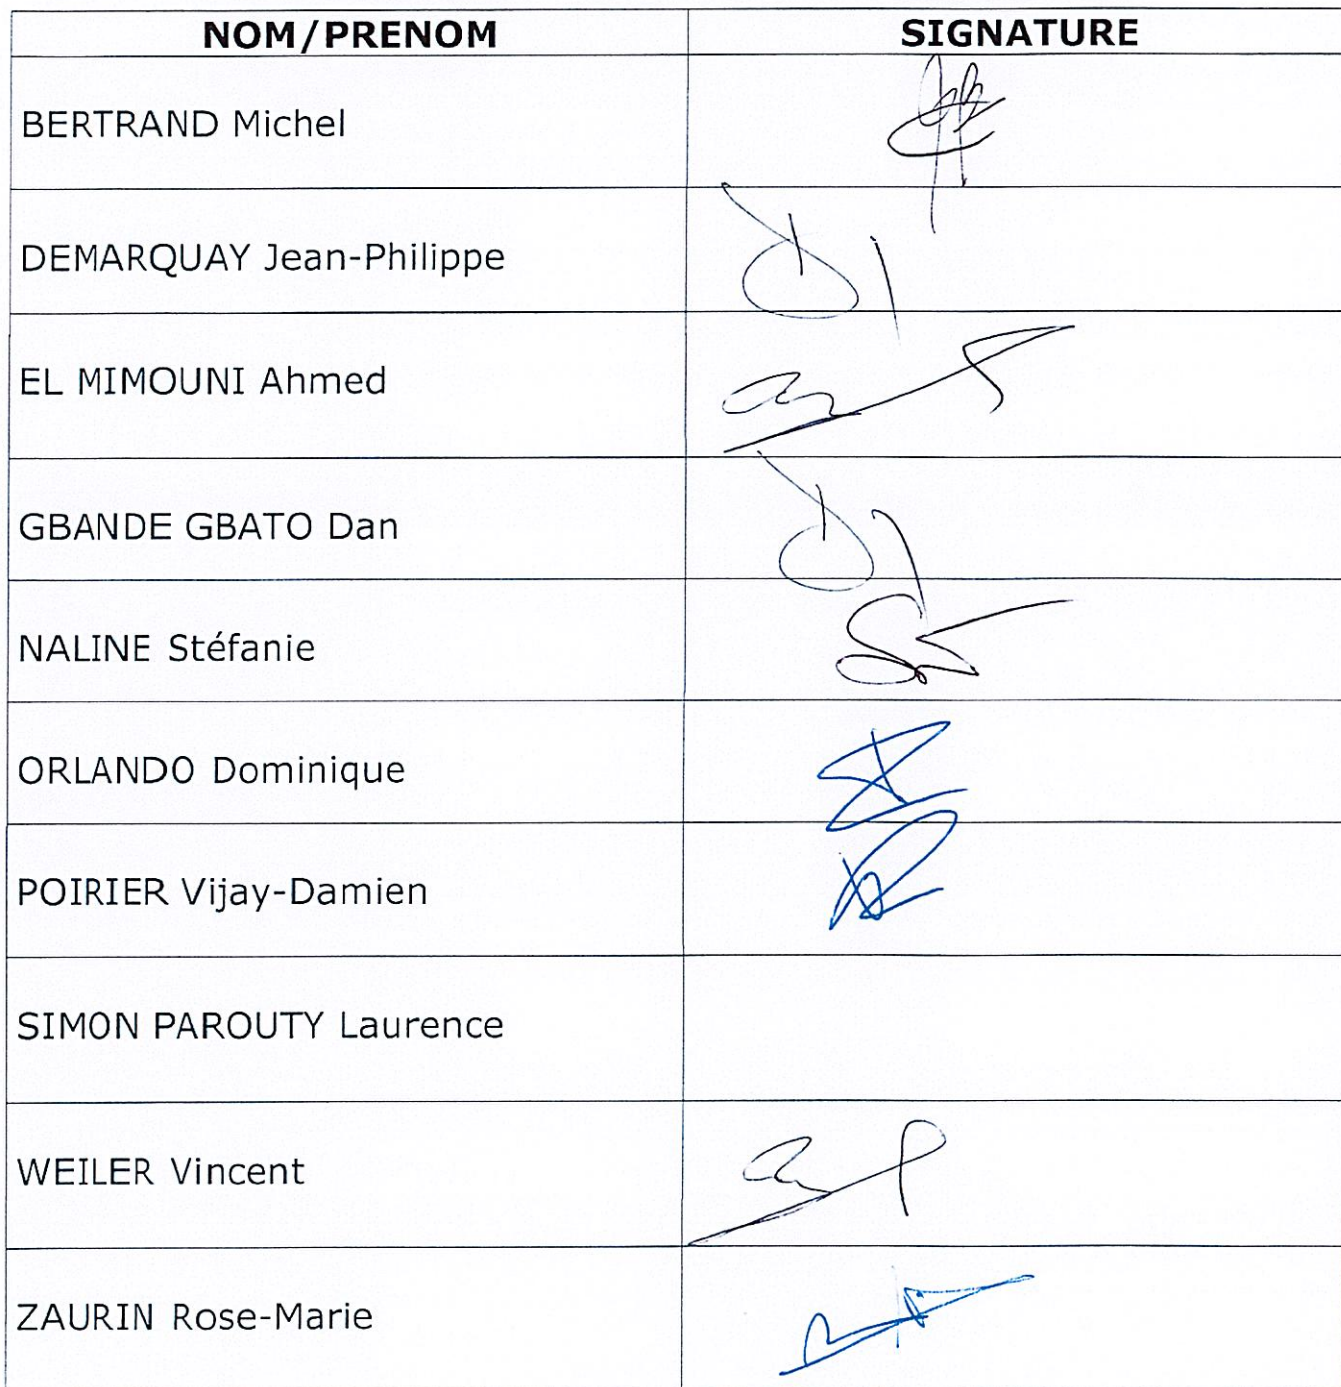 NOM/PRENOM SIGNATURE
BERTRAND Michel
DEMARQUAY Jean-Philippe
EL MIMOUNI Ahmed
GBANDE GBATO Dan
NALINE Stéfanie
ORLANDO Dominique
POIRIER Vijay-Damien
SIMON PAROUTY Laurence
WEILER Vincent
ZAURIN Rose-Marie